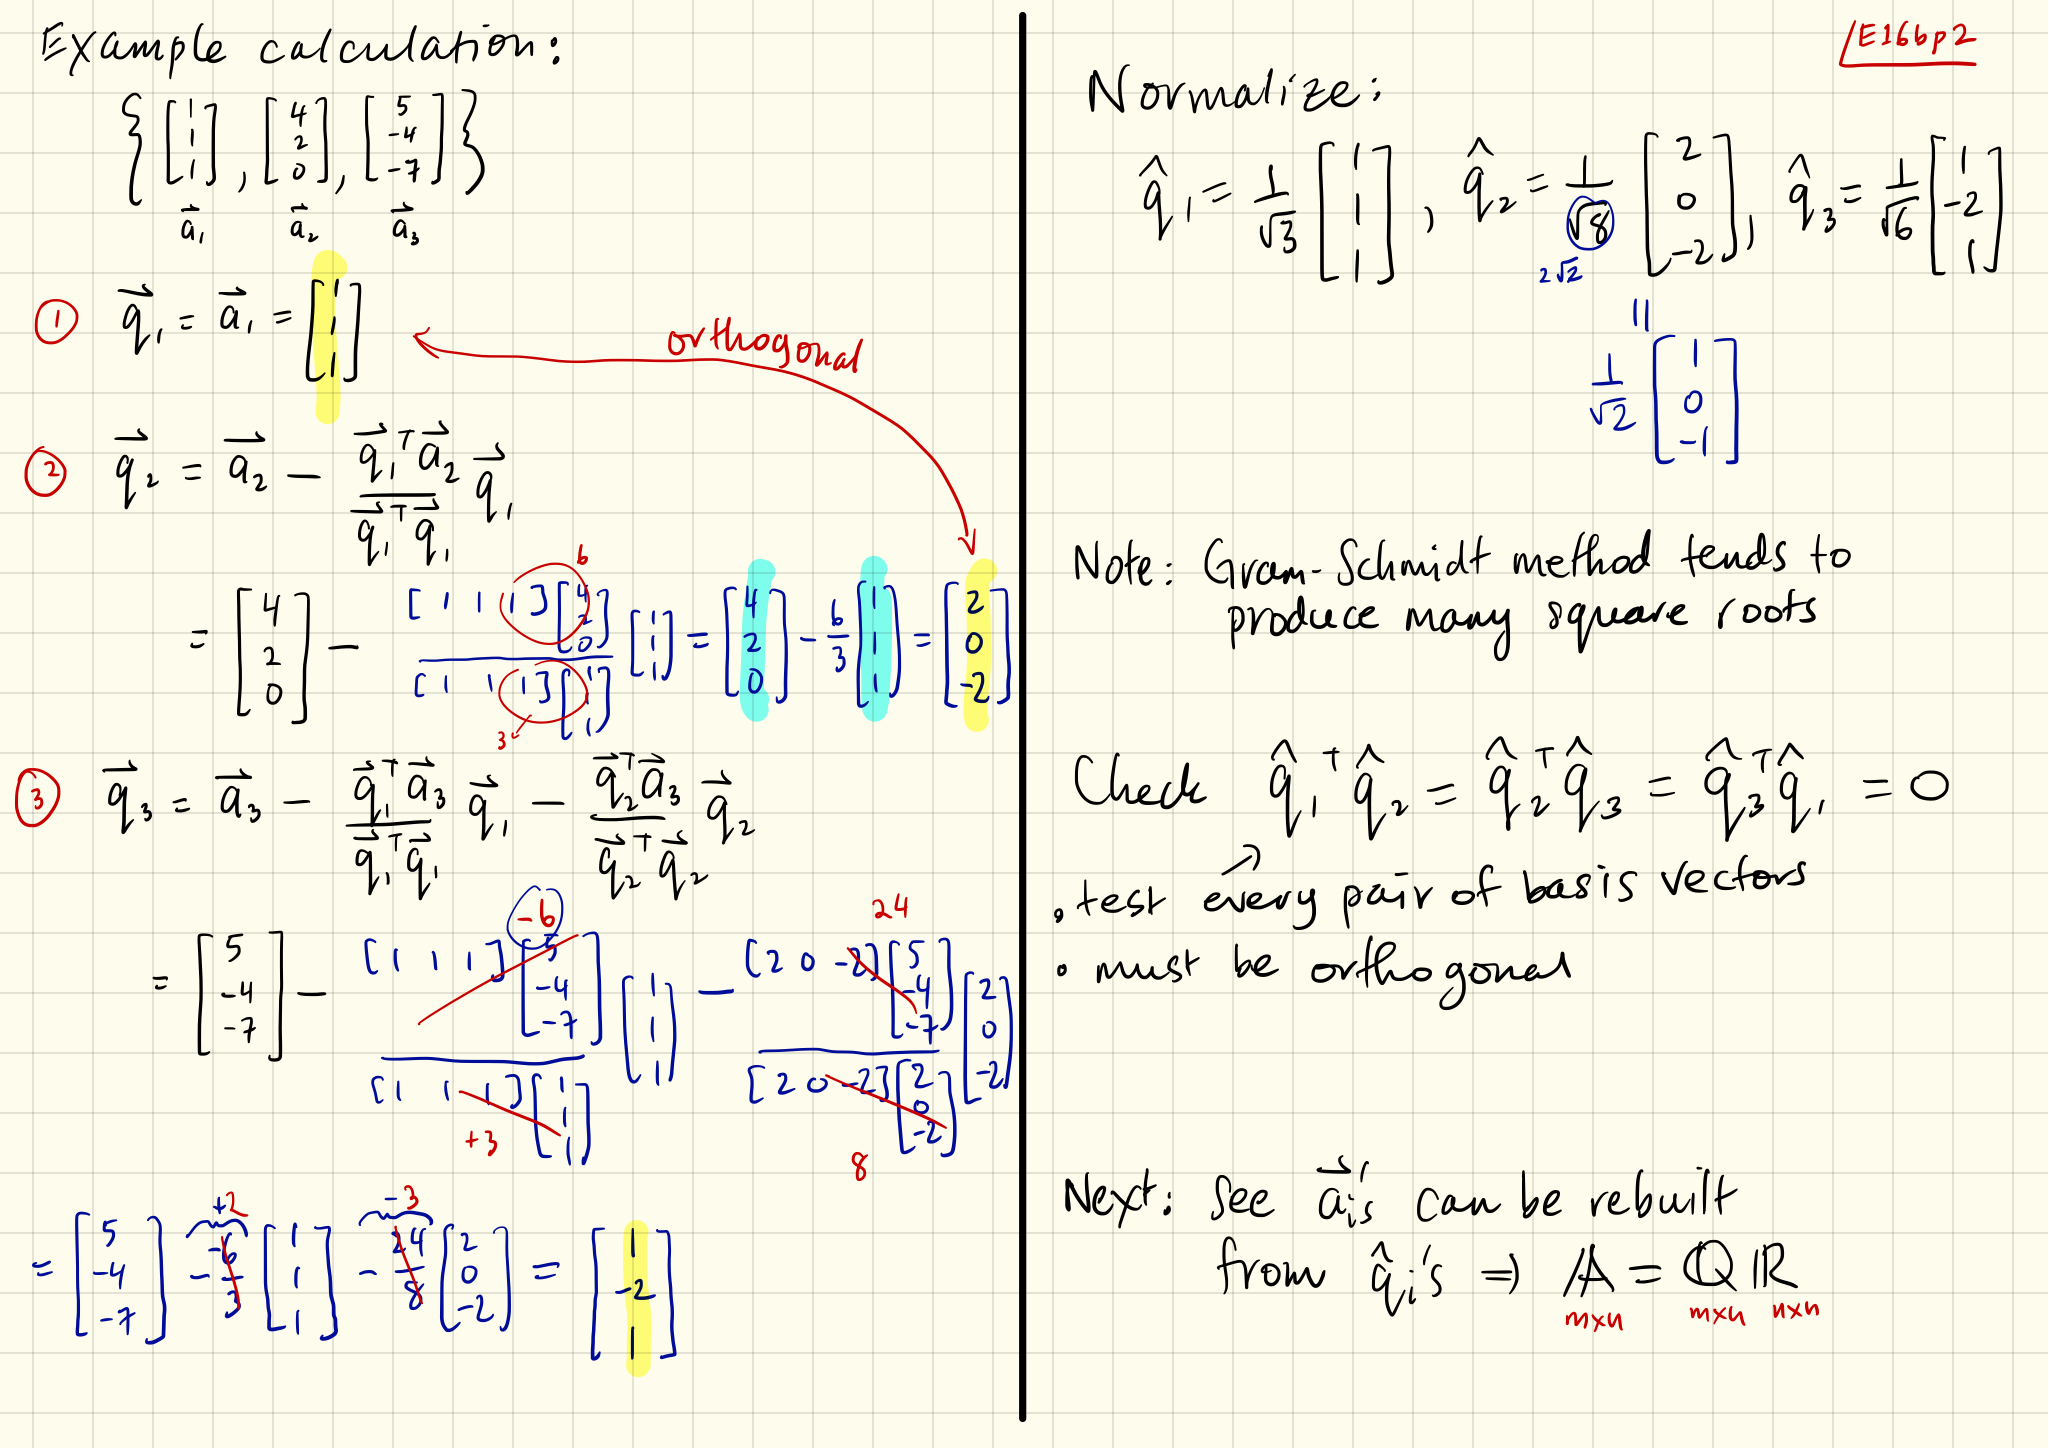 Example calculation:
{ [1 1 1], [4 2 0], [5 -4 -7] }
a⃗₁ a⃗₂ a⃗₃
① q⃗₁ = a⃗₁ = [1 1 1]
orthogonal
② q⃗₂ = a⃗₂ − (q⃗₁ᵀa⃗₂ / q⃗₁ᵀq⃗₁) q⃗₁
6
= [4 2 0] − ([1 1 1][4 2 0] / [1 1 1][1 1 1]) [1 1 1] = [4 2 0] − 6/3 [1 1 1] = [2 0 -2]
3
③ q⃗₃ = a⃗₃ − (q⃗₁ᵀa⃗₃ / q⃗₁ᵀq⃗₁) q⃗₁ − (q⃗₂ᵀa⃗₃ / q⃗₂ᵀq⃗₂) q⃗₂
-6 24
= [5 -4 -7] − ([1 1 1][5 -4 -7] / [1 1 1][1 1 1]) [1 1 1] − ([2 0 -2][5 -4 -7] / [2 0 -2][2 0 -2]) [2 0 -2]
+3 8
+2 -3
= [5 -4 -7] − -6/3 [1 1 1] − 24/8 [2 0 -2] = [1 -2 1]
LE16bp2
Normalize:
q̂₁ = 1/√3 [1 1 1], q̂₂ = 1/√8 [2 0 -2], q̂₃ = 1/√6 [1 -2 1]
2√2
=
1/√2 [1 0 -1]
Note: Gram-Schmidt method tends to
produce many square roots
Check q̂₁ᵀq̂₂ = q̂₂ᵀq̂₃ = q̂₃ᵀq̂₁ = 0
• test every pair of basis vectors
• must be orthogonal
Next: See a⃗ᵢ's can be rebuilt
from q̂ᵢ's ⇒ A = QR
mxn mxn nxn